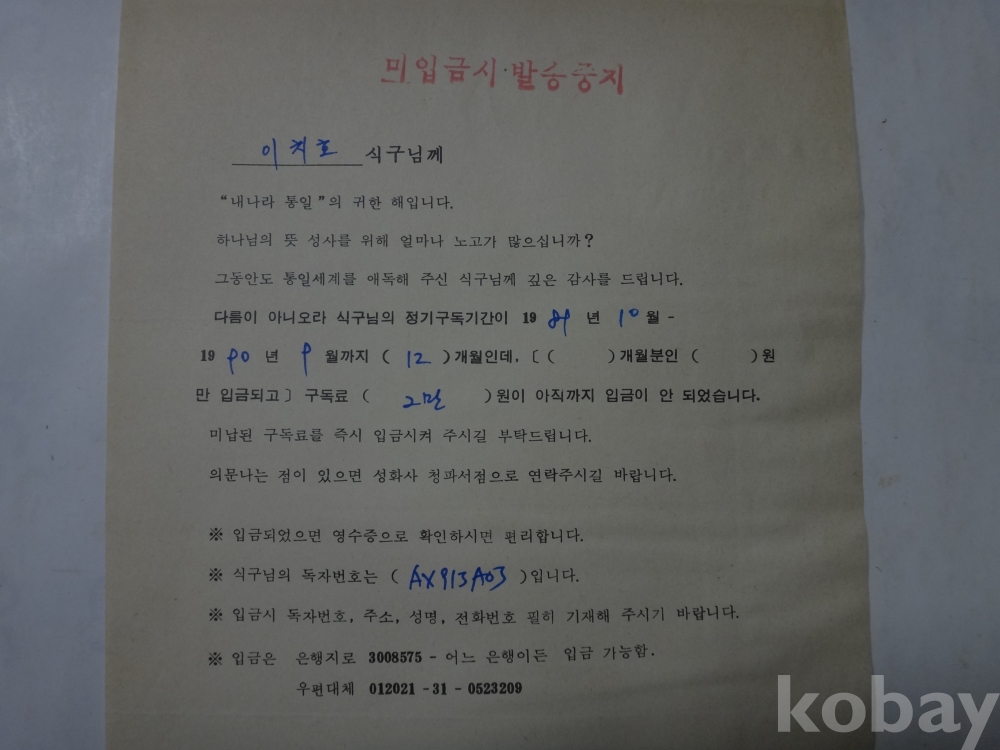 미입금시·발송중지
이치호 식구님께
"내나라 통일"의 귀한 해입니다.
하나님의 뜻 성사를 위해 얼마나 노고가 많으십니까?
그동안도 통일세계를 애독해 주신 식구님께 깊은 감사를 드립니다.
다름이 아니오라 식구님의 정기구독기간이 19 89 년 10 월 -
19 90 년 9 월까지 ( 12 )개월인데. 〔( )개월분인 ( )원
만 입금되고〕 구독료 ( 2만 )원이 아직까지 입금이 안 되었습니다.
미납된 구독료를 즉시 입금시켜 주시길 부탁드립니다.
의문나는 점이 있으면 성화사 청파서점으로 연락주시길 바랍니다.
※ 입금되었으면 영수증으로 확인하시면 편리합니다.
※ 식구님의 독자번호는 ( AX913A03 )입니다.
※ 입금시 독자번호, 주소, 성명, 전화번호 필히 기재해 주시기 바랍니다.
※ 입금은 은행지로 3008575 - 어느 은행이든 입금 가능함.
우편대체 012021 - 31 - 0523209
kobay